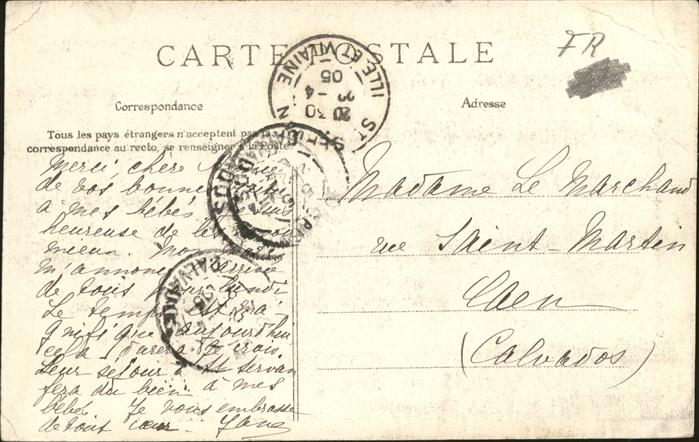 CARTE POSTALE
FR
Correspondance
Adresse
Tous les pays étrangers n'acceptent pas la
correspondance au recto, se renseigner à la Poste.
ILLE ET VILAINE
20 30
22 -4
05
CALVADOS
Merci, chère
de vos bonnes
à mes bébés.
heureuse de les
mieux.
m'annonce
de tous
Le temps est ma-
gnifique aujourd'hui
cela durera je crois.
Leur séjour à St Servan
fera du bien à mes
bébés. Je vous embrasse
de tout cœur. Jane
Madame Le Marchand
rue Saint-Martin
Caen
(Calvados)